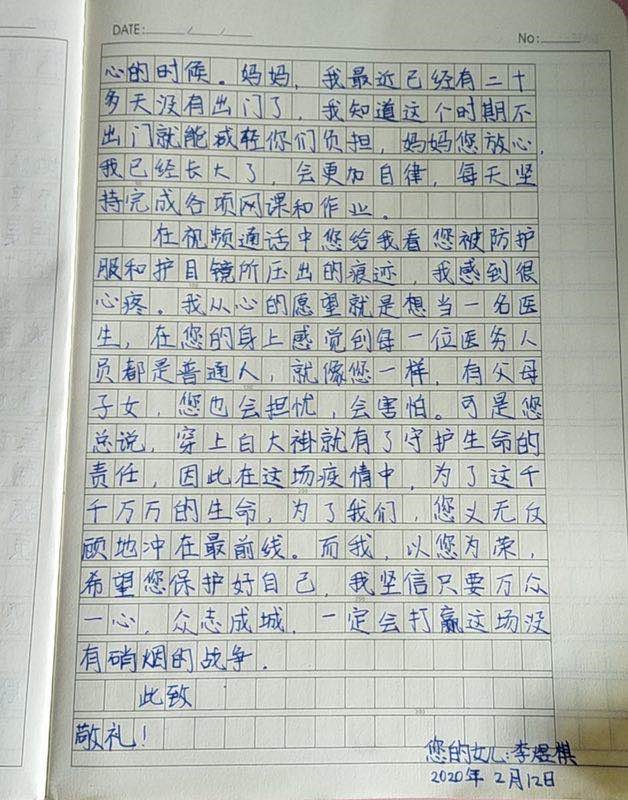 DATE: / /
No:
心的时候。妈妈，我最近已经有二十
多天没有出门了，我知道这个时期不
出门就能减轻你们负担，妈妈您放心，
我已经长大了，会更加自律，每天坚
持完成各项网课和作业。
在视频通话中您给我看您被防护
服和护目镜所压出的痕迹，我感到很
心疼。我从心的愿望就是想当一名医
生，在您的身上感觉到每一位医务人
员都是普通人，就像您一样，有父母
子女，您也会担忧，会害怕。可是您
总说，穿上白大褂就有了守护生命的
责任，因此在这场疫情中，为了这千
千万万的生命，为了我们，您义无反
顾地冲在最前线。而我，以您为荣，
希望您保护好自己，我坚信只要万众
一心，众志成城，一定会打赢这场没
有硝烟的战争．
此致
敬礼！
您的女儿：李煜棋
2020年2月12日